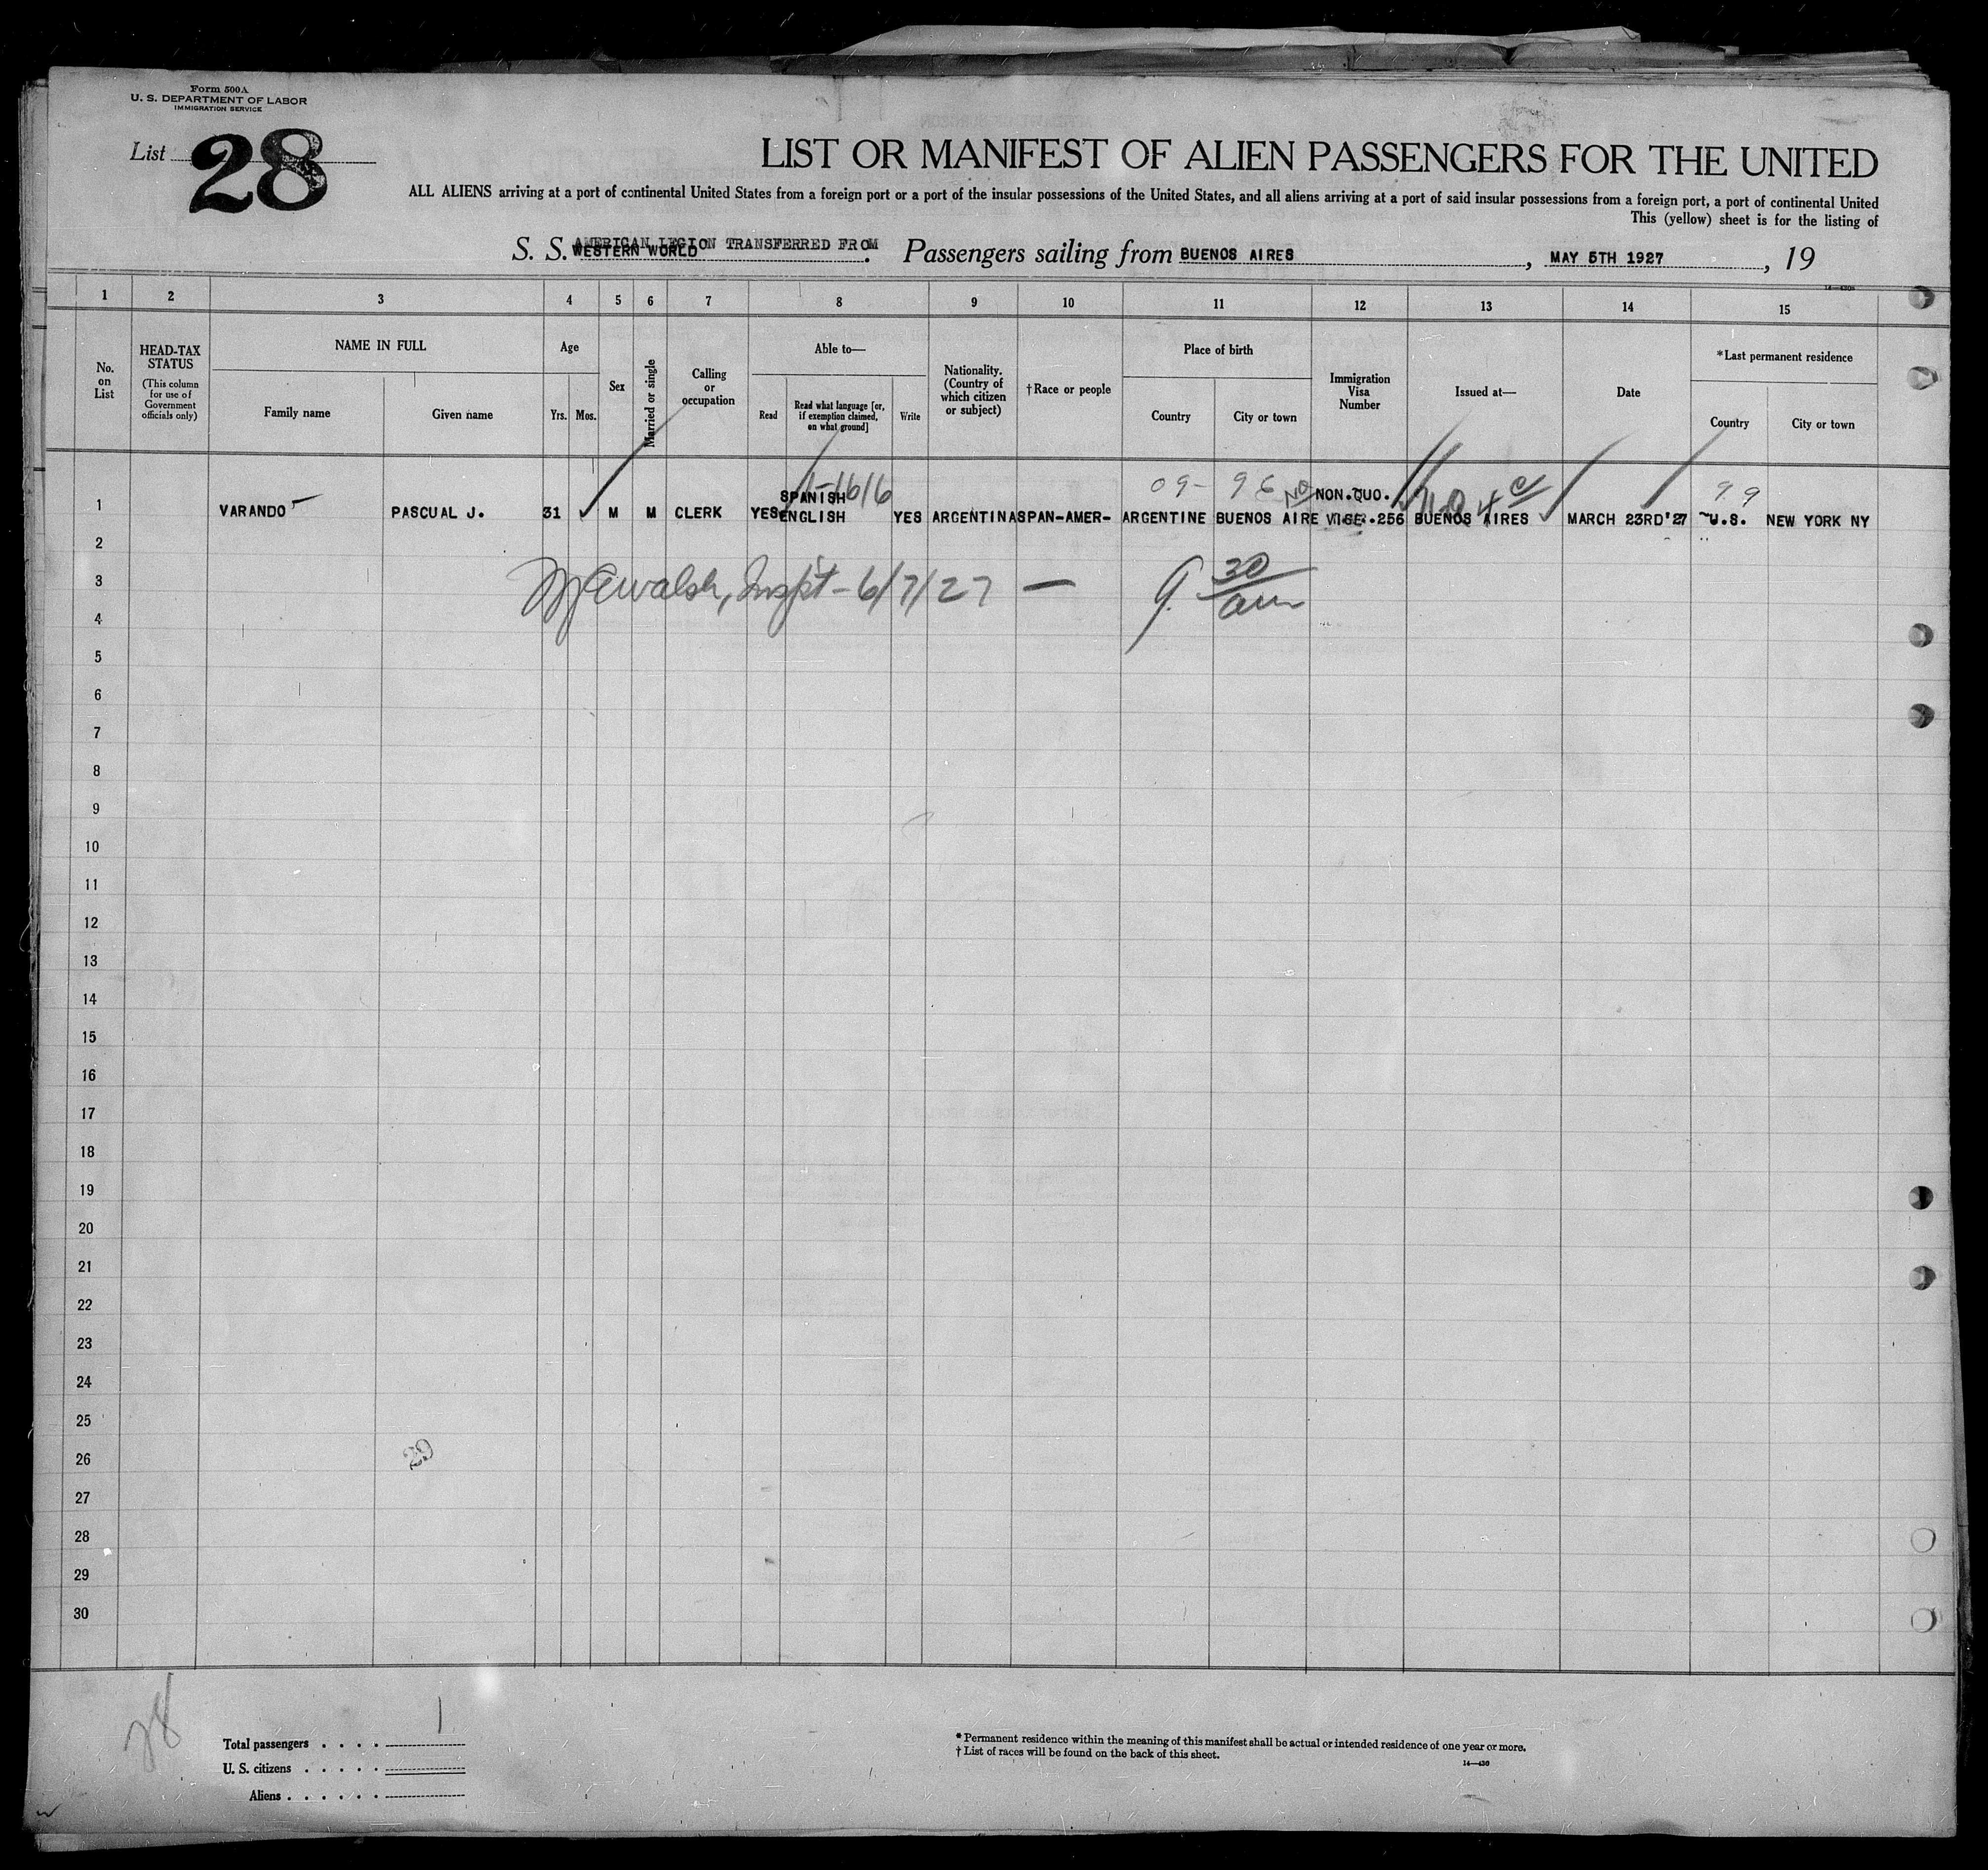 Form 500A
U. S. DEPARTMENT OF LABOR
IMMIGRATION SERVICE
List 28
LIST OR MANIFEST OF ALIEN PASSENGERS FOR THE UNITED
ALL ALIENS arriving at a port of continental United States from a foreign port or a port of the insular possessions of the United States, and all aliens arriving at a port of said insular possessions from a foreign port, a port of continental United
This (yellow) sheet is for the listing of
AMERICAN LEGION TRANSFERRED FROM
S. S. WESTERN WORLD. Passengers sailing from BUENOS AIRES, MAY 5TH 1927, 19
14—430
1 2 3 4 5 6 7 8 9 10 11 12 13 14 15
No. on List
HEAD-TAX STATUS
(This column for use of Government officials only)
NAME IN FULL
Family name
Given name
Age
Yrs. Mos.
Sex
Married or single
Calling or occupation
Able to—
Read
Read what language [or, if exemption claimed, on what ground]
Write
Nationality. (Country of which citizen or subject)
†Race or people
Place of birth
Country
City or town
Immigration Visa Number
Issued at—
Date
*Last permanent residence
Country
City or town
SPANISH 1-1616 09- 96 NO NON.QUO. 99
1 VARANDO PASCUAL J. 31 M M CLERK YES ENGLISH YES ARGENTINA SPAN-AMER- ARGENTINE BUENOS AIRE VISE.256 BUENOS AIRES MARCH 23RD'27 U.S. NEW YORK NY
2
3 Walsh, Inspt - 6/7/27 — 9 30/am
4
5
6
7
8
9
10
11
12
13
14
15
16
17
18
19
20
21
22
23
24
25
26 29
27
28
29
30
28
Total passengers . . . . 1
U. S. citizens . . . . .
Aliens . . . . . .
*Permanent residence within the meaning of this manifest shall be actual or intended residence of one year or more.
†List of races will be found on the back of this sheet.
14—430